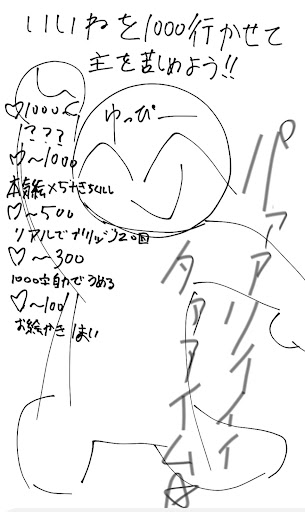 いいねを1000行かせて
主を苦しめよう!!
ゆっぴー
♡1000〜
????
♡〜1000
本気絵×5
♡〜500
リアルでブリッジ20回
♡〜300
1000字自力でうめる
♡〜100
お絵かき1まい
パァァリィィィ
タァァイム☆